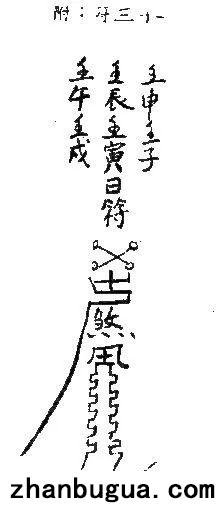 附：三十一
壬申壬子
壬辰壬寅日符
壬午壬戌
煞
zhanbugua.com